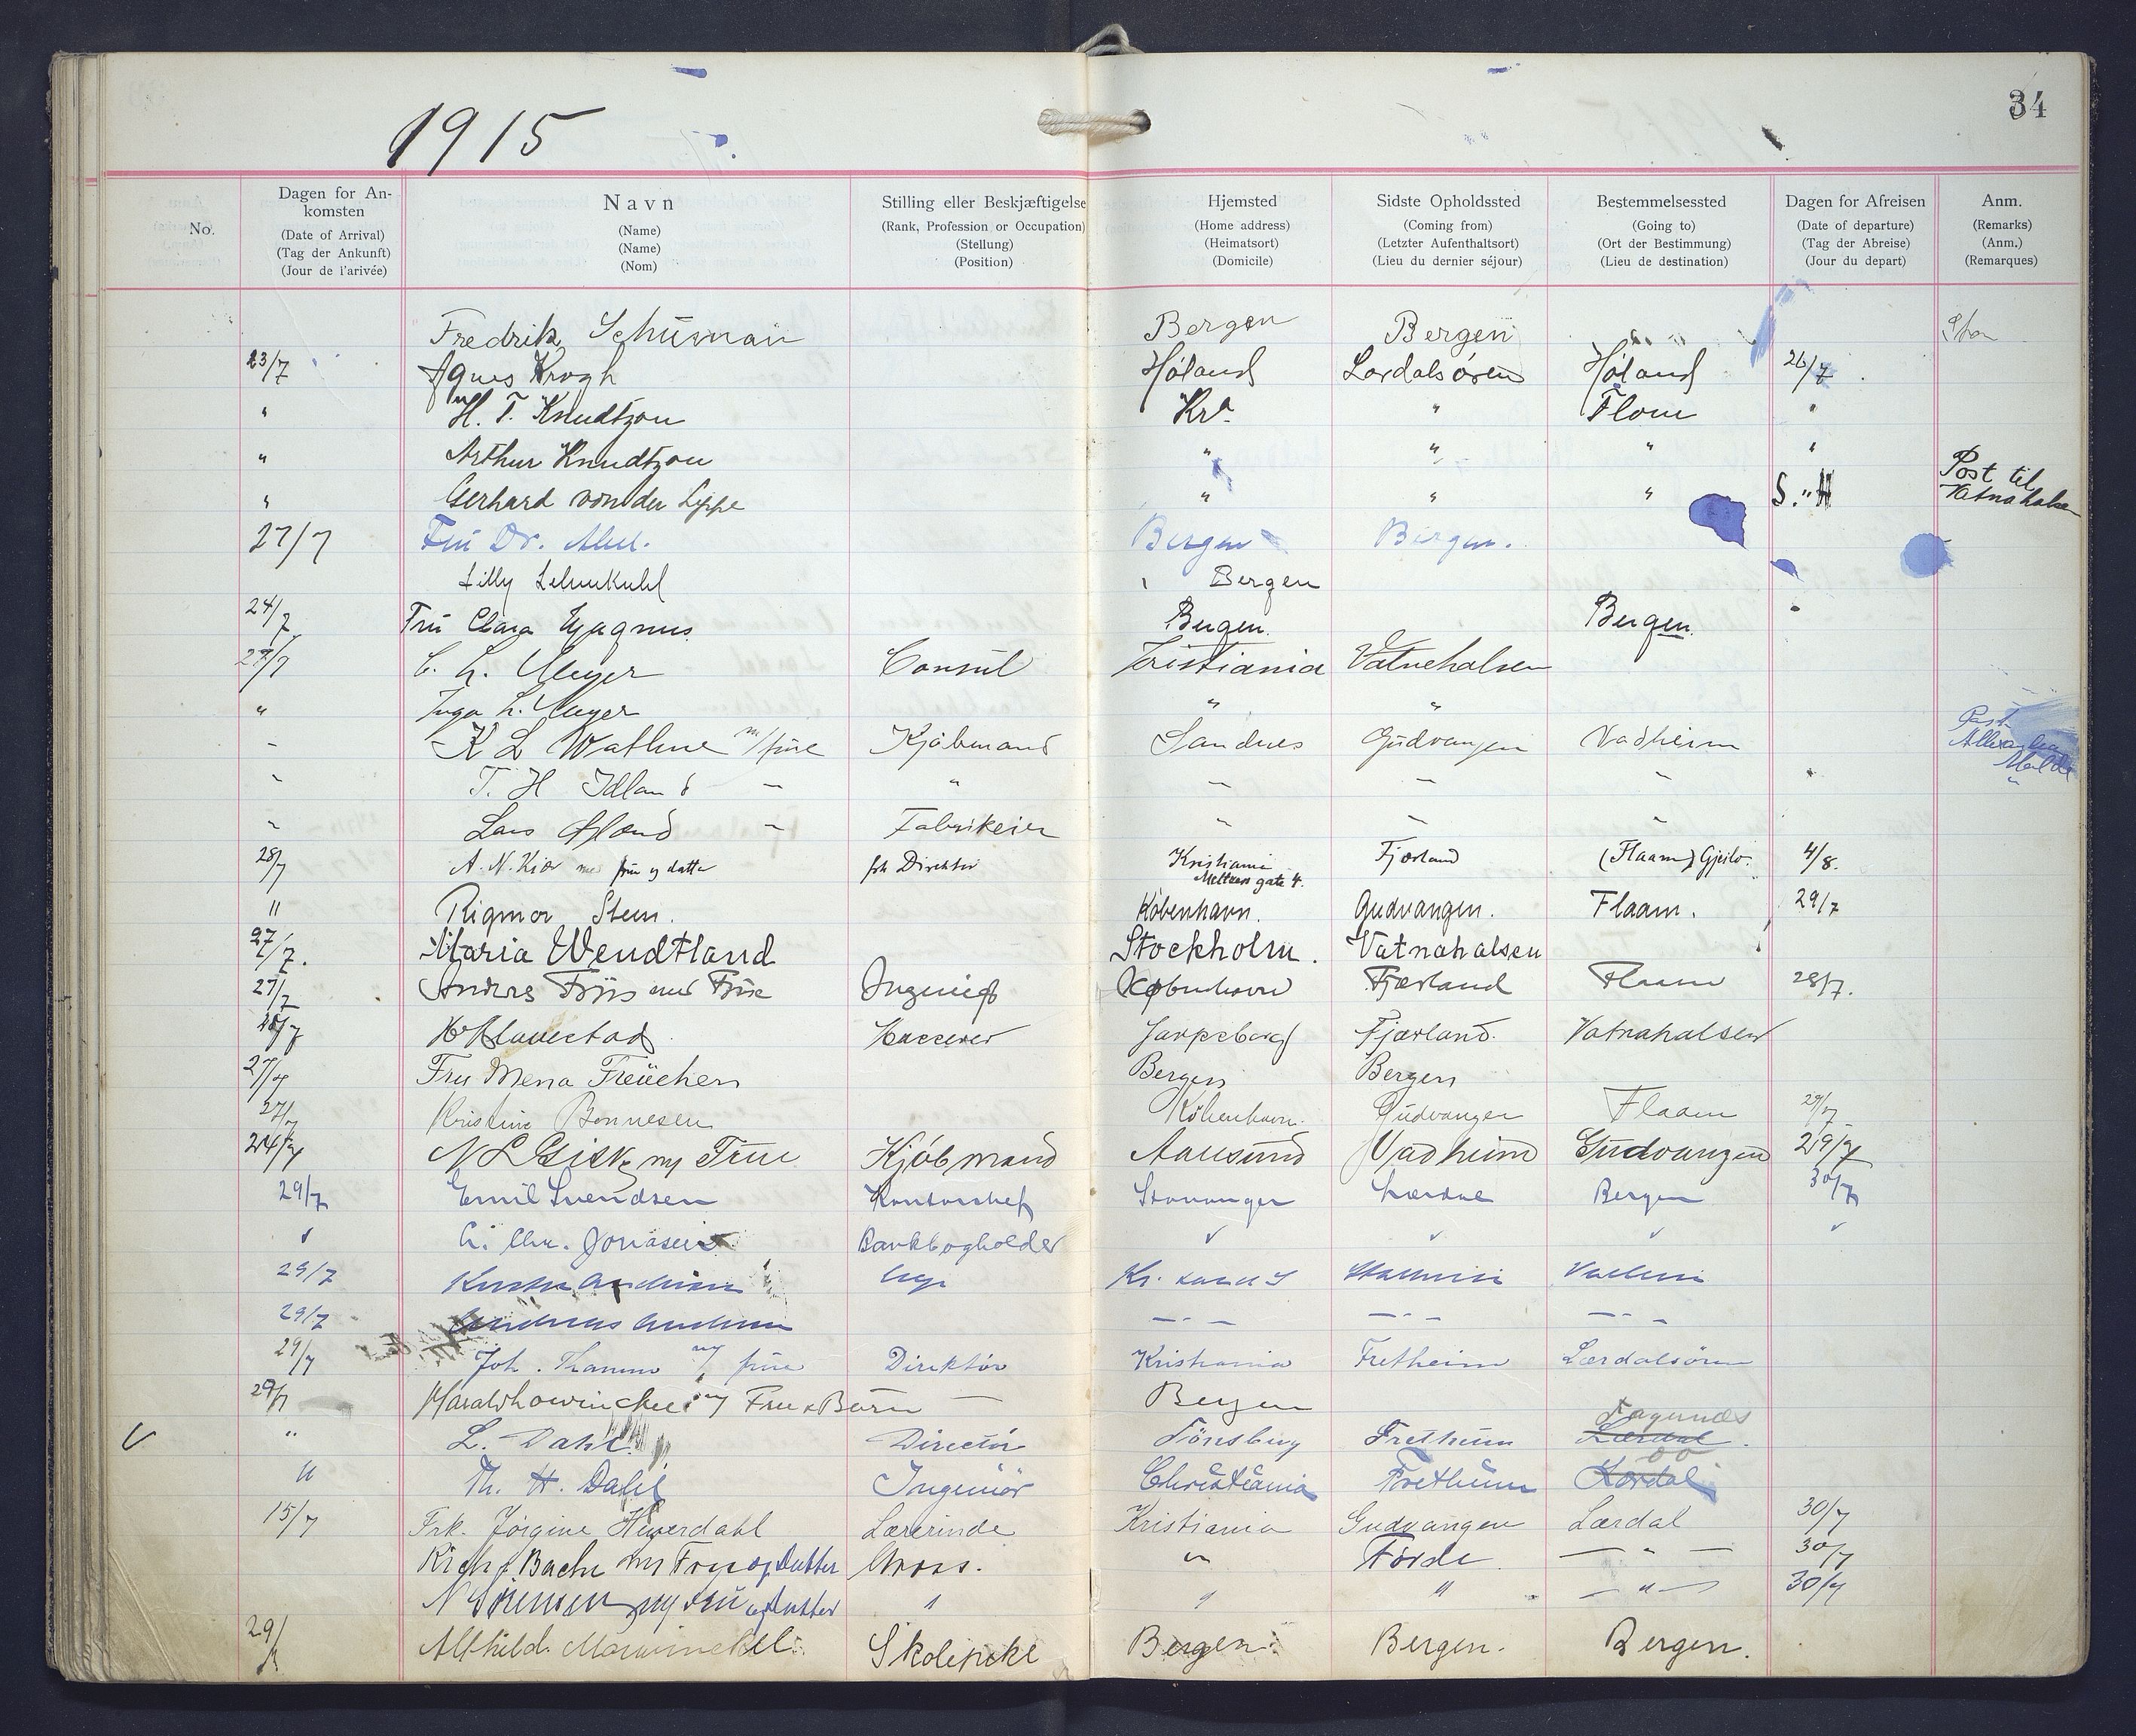 1915
34
No.
Dagen for An-
komsten
(Date of Arrival)
(Tag der Ankunft)
(Jour de l'arivée)
Navn
(Name)
(Name)
(Nom)
Stilling eller Beskjæftigelse
(Rank, Profession or Occupation)
(Stellung)
(Position)
Hjemsted
(Home address)
(Heimatsort)
(Domicile)
Sidste Opholdssted
(Coming from)
(Letzter Aufenthaltsort)
(Lieu du dernier séjour)
Bestemmelsessted
(Going to)
(Ort der Bestimmung)
(Lieu de destination)
Dagen for Afreisen
(Date of departure)
(Tag der Abreise)
(Jour du depart)
Anm.
(Remarks)
(Anm.)
(Remarques)
Fredrik Schuman Bergen Bergen
23/7 Agnes Krogh Høland Lærdalsøren Høland 26/7
" H. T. Knudtzon Kra. " Flom "
" Arthur Knudtzon " " " "
" Gerhard von der Lippe " " " Post til Vatnahalsen
27/7 Fru Dr. Bergen Bergen.
Lilly Lehmkuhl Bergen
24/7 Fru Clara Magnus Bergen. Bergen.
27/7 C. H. Meyer Consul Kristiania Vatnehalsen
" Inga H. Meyer " "
" K L Wathne m/frue Kjøbmand Sandnes Gudvangen Vadheim Post
" T. H Idland " " " " "
" Lars " Fabrikeier " " "
28/7 A. N. Kiær med frue og datter fh Direktør Kristiania Meltzers gate 4. Fjærland (Flaam) Gjeilo. 4/8.
" Rigmor Stein. København. Gudvangen. Flaam. 29/7
27/7. Maria Wendtland Stockholm. Vatnahalsen
27/7 Anders Friis med Frue Ingeniør København Fjærland Flaam 28/7.
Kasserer Sarpsborg Fjærland. Vatnahalsen
27/7 Fru Mena Freuchen Bergen Bergen
27/7 Kristine Bonnesen København. Gudvangen Flaam 29/7
N L Giske m/ Frue Kjøbmand Aalesund Vadheim Gudvangen 29/7
29/7 Emil Svendsen Kontorchef Stavanger Lærdal Bergen 30/7
Chr. Jonasen Bankbogholder
29/7 Kr. sand S
29/7 Andreas
29/7 Joh. Thamm m/ frue Direktør Kristiania Fretheim Lærdalsøren
29/7 Harald m/ Frue & Børn Bergen
Fagernæs
" L. Dahl Director Tönsberg Fretheim Lærdal.
" Th. H. Dahl Ingeniör Christiania Fretheim Lærdal
15/7 Frk. Jørgine Heyerdahl Lærerinde Kristiania Gudvangen Lærdal 30/7
Bache m/ Frue og Datter Gross. " Førde " 30/7
N m/ Fru og Datter " " " " 30/7
29/7 Alfhild Skolepike Bergen. Bergen. Bergen.